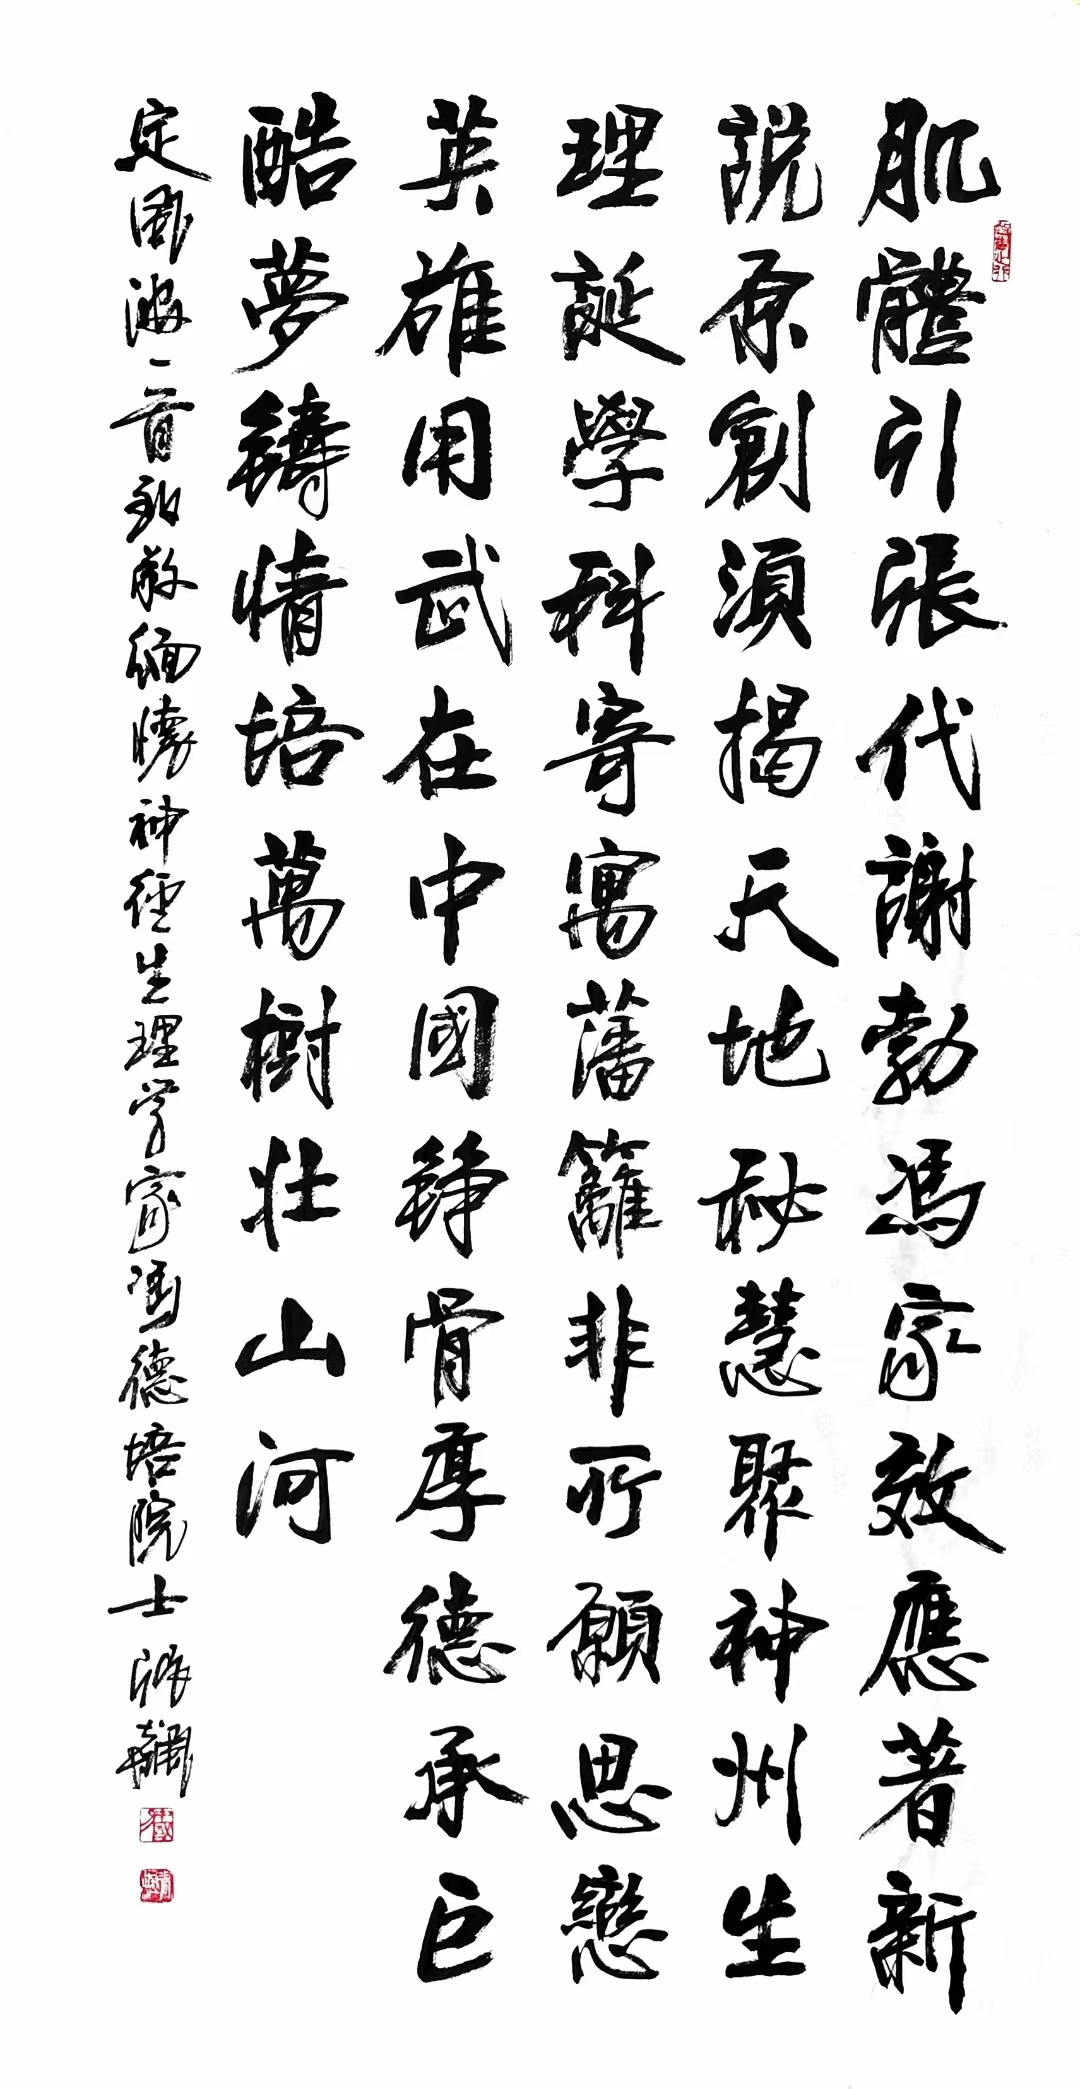 肌體引張代謝勃馮家效應著新
説原創須揭天地秘慧聚神州生
理誕學科寄寓藩籬非所願思戀
英雄用武在中國錚骨厚德承巨
酷夢鑄情培萬樹壯山河
定風波一首致敬緬懷神經生理学家馮德培院士 張